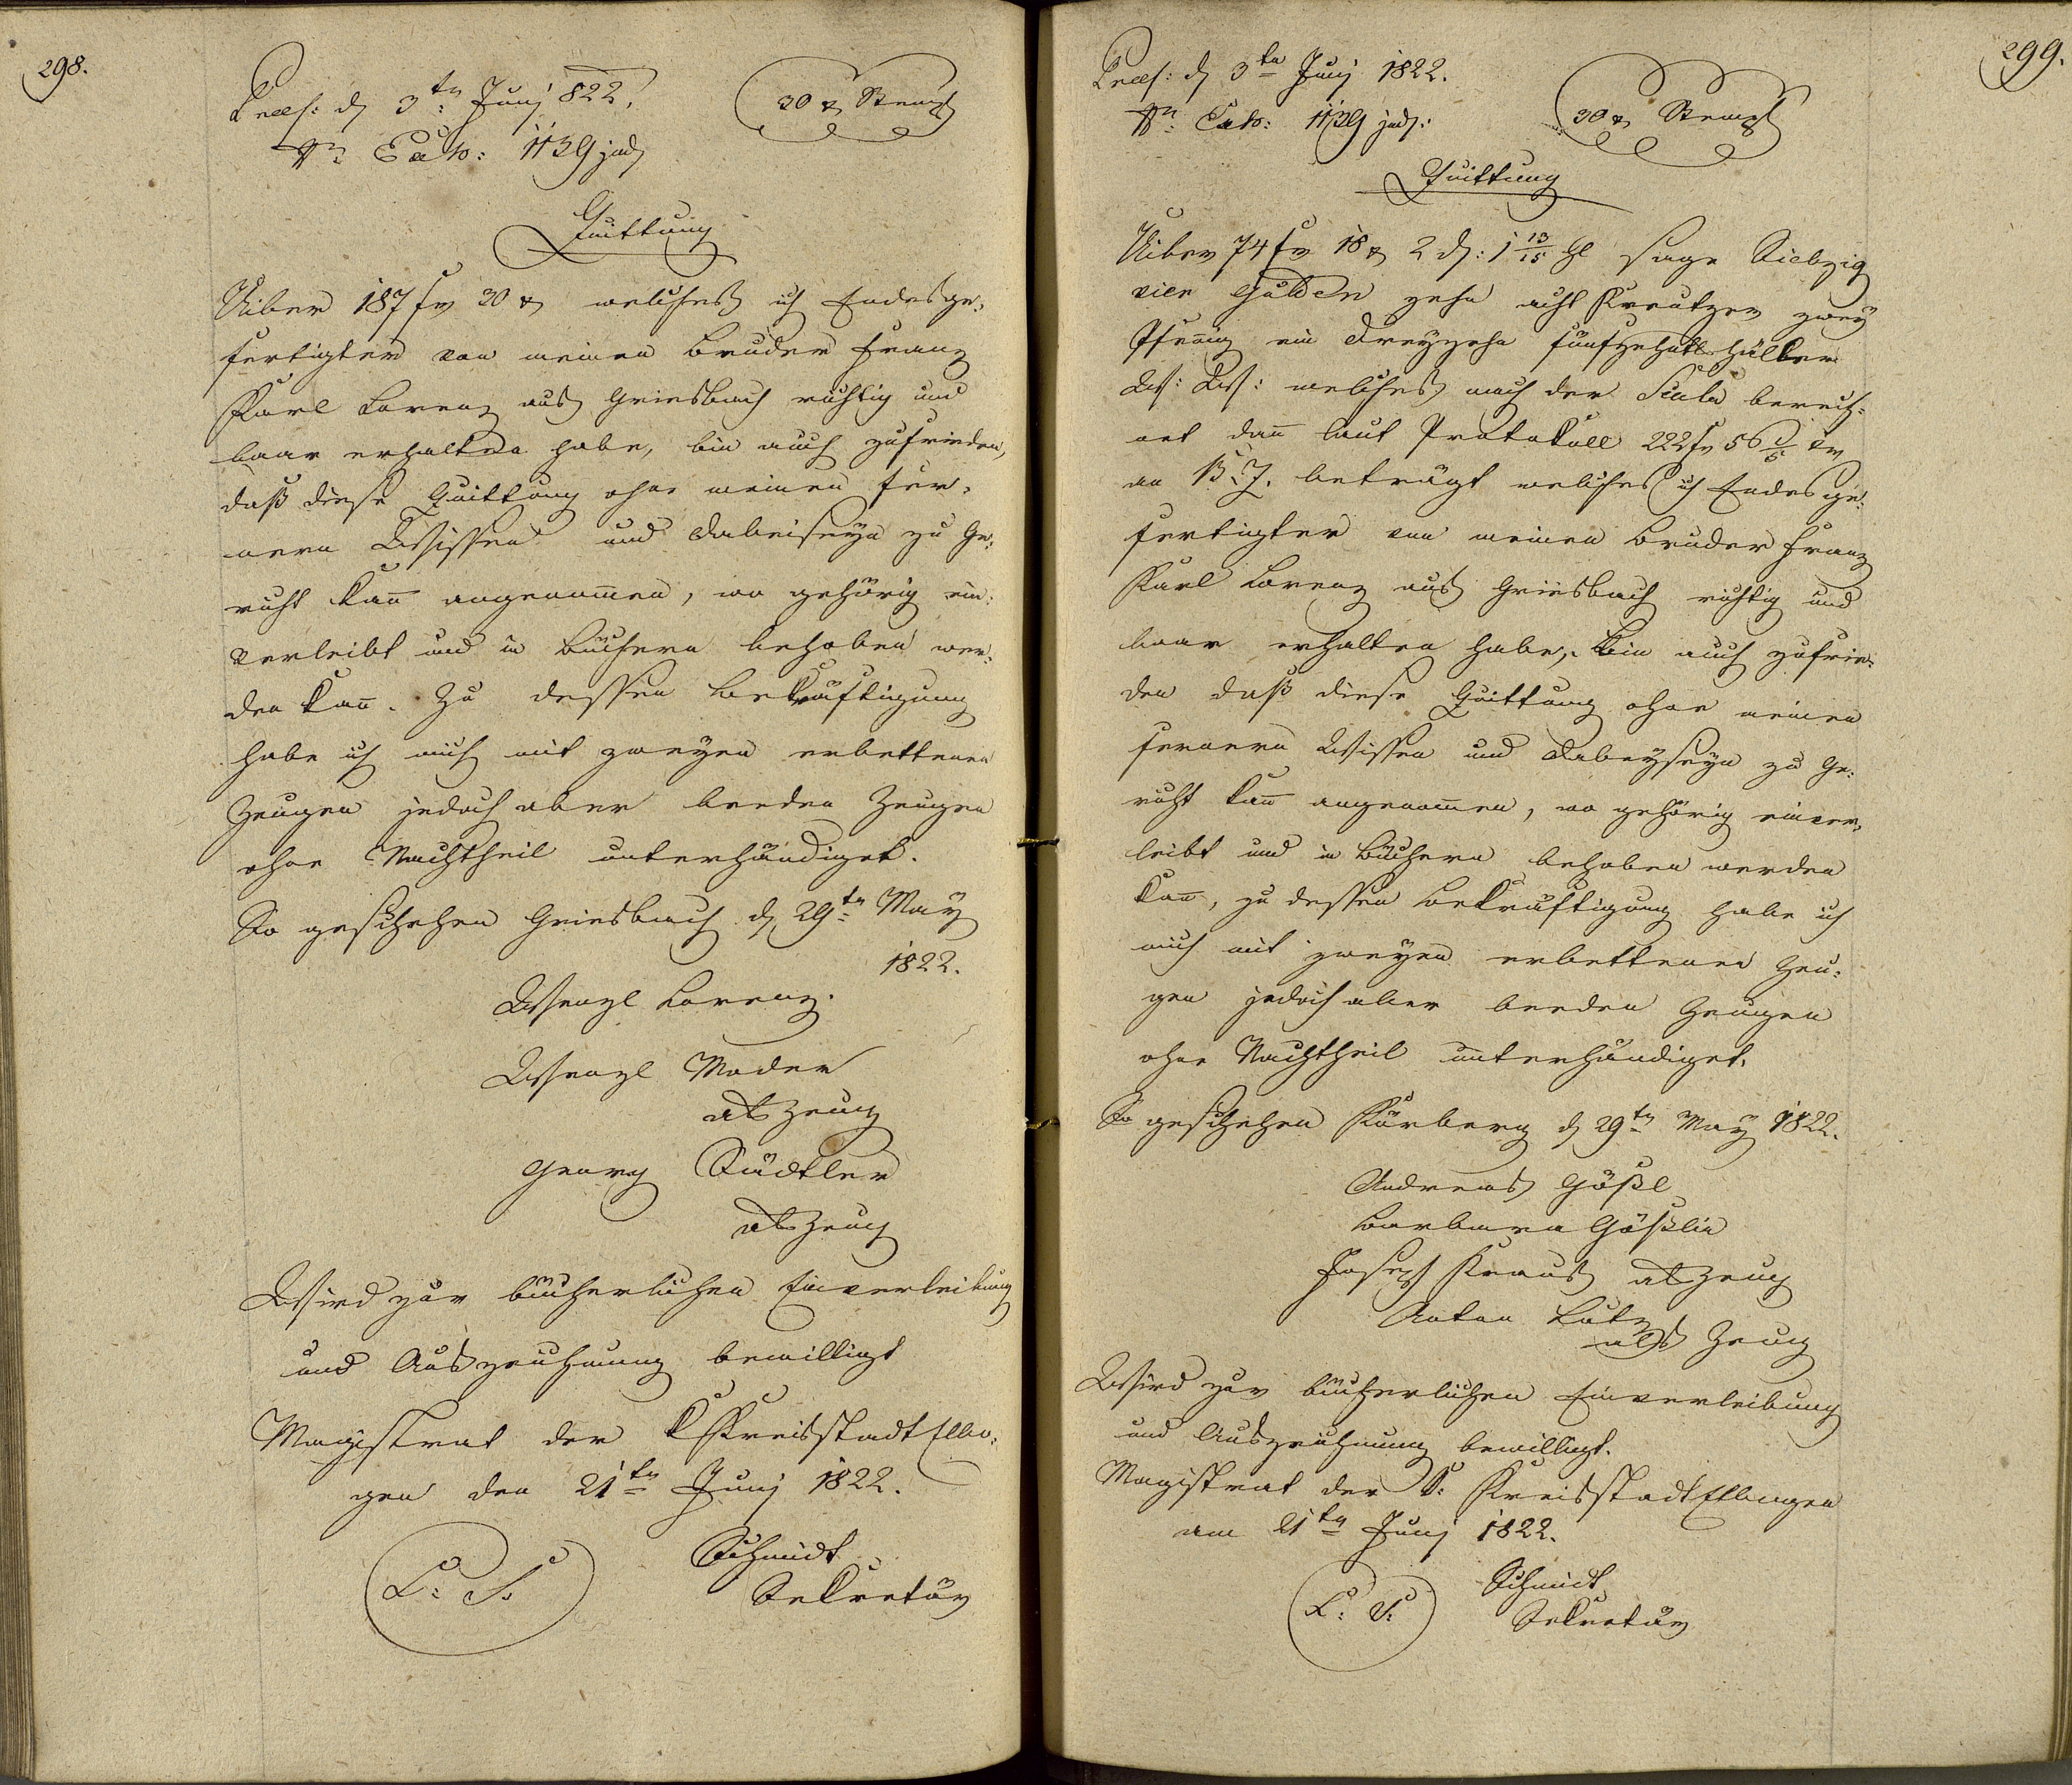 298.
Præs: d 3tn Juny 822.
30 x Stempl
Nr: Exh: 1139 jud
Quittung
Uiber 187 fr 30 x welches ich Endesge-
fertigter von meinen Bruder Franz
Karl Lorenz aus Griesbach richtig und
baar erhalten habe, bin auch zufrieden,
daß diese Quittung ohne meinen fer-
nern Wissen und Dabeiseyn zu Ge-
richt kan̄ angenom̄en, wo gehörig ein-
verleibt und in Büchern behoben wer-
den kan̄. Zu dessen Bekräftigung
habe ich mich mit zweyen erbettenen
Zeugen jedoch aber beeden Zeugen
ohne Nachtheil unterhändiget.
So geschehen Griesbach d 29tn May
1822.
Wenzl Lorenz.
Wenzl Moder
als Zeug
Georg Städtler
als Zeug
Wird zur bücherlichen Einverleibung
und Auszeichnung bewilligt
Magistrat der K Kreisstadt Elbo-
gen den 21tn Juny 1822.
L: S.
Schmidt
Sekretär
299.
Præs: d 3tn Juny 1822.
Nr: Exh: 1139 jud:
30 x Stempl
Quittung
Uiber 74 fr 18 x 2 d: 1 13/15 hl sage Siebzig
vier Gulden zehn acht Kreutzer zwey
Pfen̄ig ein Dreyzehn fünfzehntl Häller
W: W: welches nach der Scala berech-
net dan̄ laut Protokoll 222 fr 56 1/5 xr
an B. Z. beträgt welches ich Endesge-
fertigter von meinen Bruder Franz
Karl Lorenz aus Griesbach richtig und
baar erhalten habe, bin auch zufrie-
den daß diese Quittung ohne meinen
fernern Wissen und Dabeyseyn zu Ge-
richt kan̄ angenom̄en, wo gehörig einver-
leibt und in Büchern behoben werden
kan̄, zu dessen Bekräftigung habe ich
mich mit zweyen erbettenen Zeu-
gen jedoch aber beeden Zeugen
ohne Nachtheil unterhändiget.
So geschehen Kürberg d 29tn May 1822.
Andreas Gößl
Barbara Gößlin
Joseph Kraus als Zeug
Anton Lutz
als Zeug
Wird zur bücherlichen Einverleibung
und Auszeichnung bewilligt.
Magistrat der K: Kreisstadt Ellbogen
am 21tn Juny 1822.
L: S:
Schmidt
Sekretär